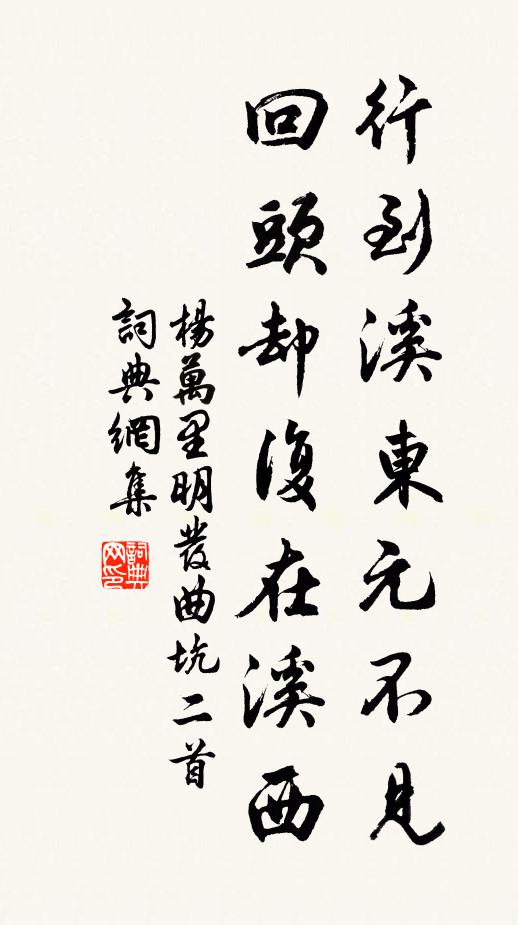 行到溪東元不見
回頭却復在溪西
楊萬里明發曲坑二首
詞典網集
詞典网印